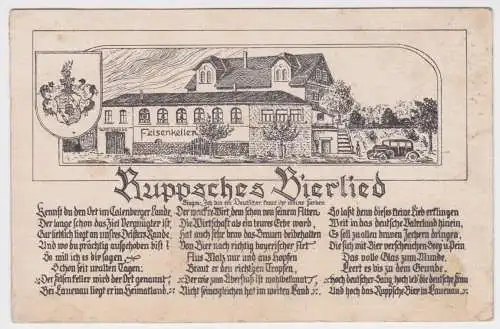 Felsenkeller
Ruppsches Bierlied
Singw.: Ich bin ein Deutscher, kennt ihr meine Farben
Kennst du den Ort im Calenberger Lande,
Der lange schon das Ziel Vergnügter ist,
Gar lieblich liegt an seines Deisters Rande
Und wo du prächtig aufgehoben bist?
So will ich es dir sagen
Schon seit uralten Tagen:
Der Felsenkeller wird der Ort genannt,
Bei Lauenau liegt er im Heimatland.
Der wack're Wirt, dem schon von seinem Alten,
Die Wirtschaft als ein teures Erbe ward
Hat auch sehr brav das Brauen beibehalten
Von Bier nach richtig bayerischer Art
Aus Malz nur und aus Hopfen
Braut er den richtigen Tropfen,
Der wie zum Überfluß ist wohlbekannt,
Nicht seinesgleichen hat im weiten Land.
So laßt denn dieses kleine Lied erklingen
Weit in das deutsche Vaterland hinein,
Es soll zu allen bravem Zechern dringen,
Die sich mit Bier verscheuchen Sorg' u. Pein.
Das volle Glas zum Munde,
Leert es bis zu dem Grunde.
Hoch deutscher Sang, hoch leb' die deutsche
Und hoch das Ruppsche Bier in Lauenau.